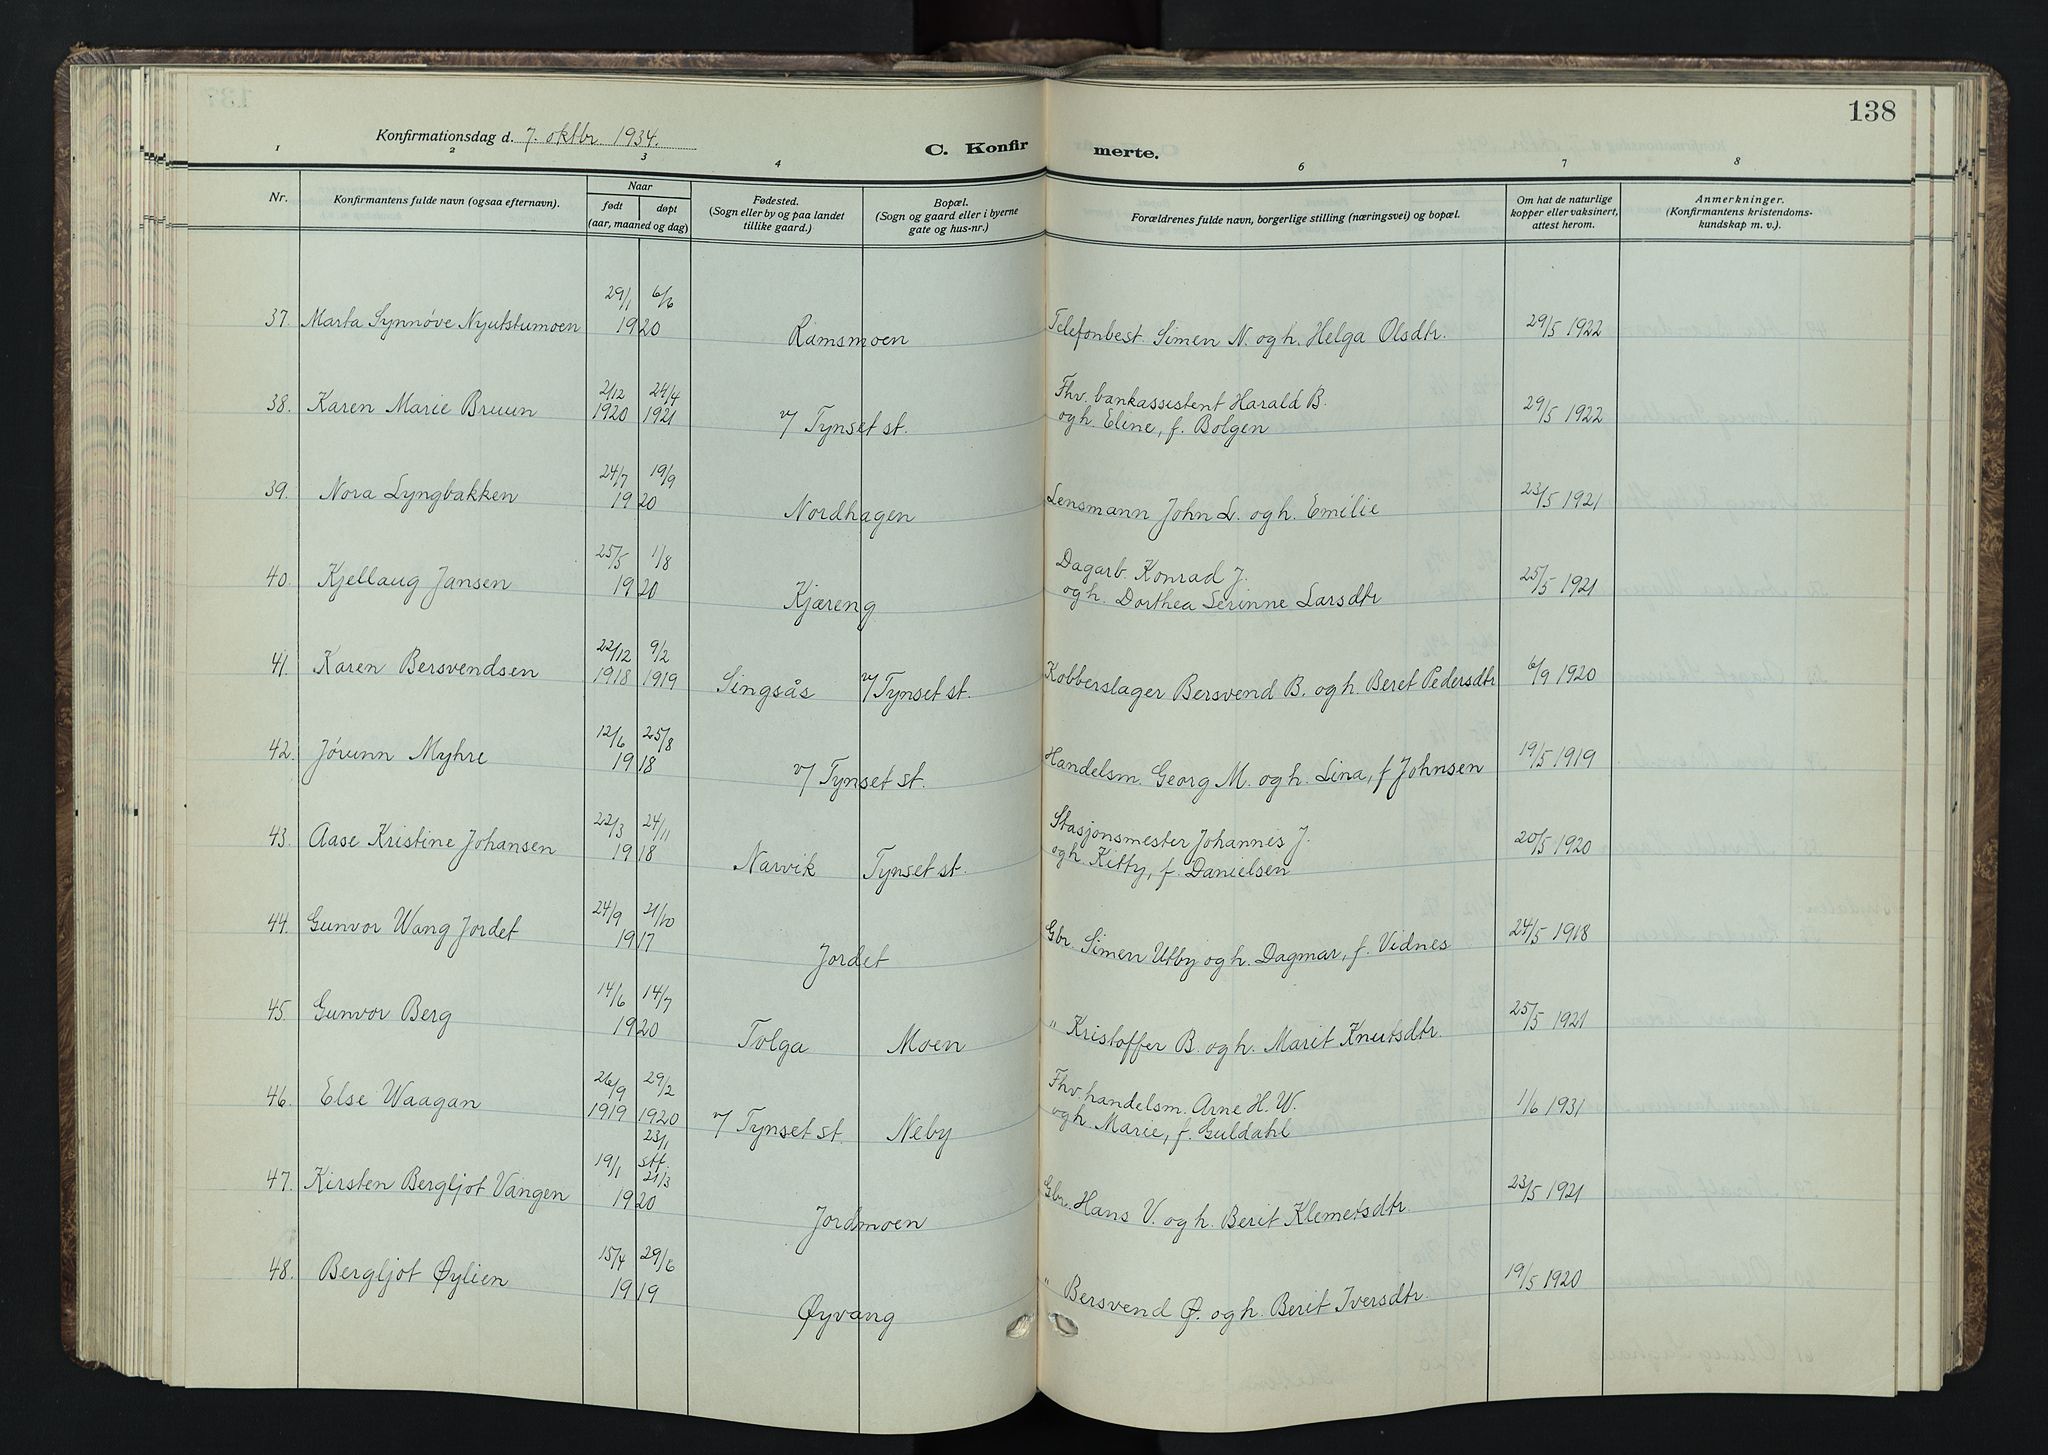 138
Konfirmationsdag d. 7. oktbr. 1934.
C. Konfirmerte.
1 2 3 4 5 6 7 8
Nr.
Konfirmantens fulde navn (ogsaa efternavn).
Naar
født døpt
(aar, maaned og dag)
Fødested.
(Sogn eller by og paa landet
tillike gaard.)
Bopæl.
(Sogn og gaard eller i byerne
gate og hus-nr.)
Forældrenes fulde navn, borgerlige stilling (næringsvei) og bopæl.
Om hat de naturlige
kopper eller vaksinert,
attest herom.
Anmerkninger.
(Konfirmantens kristendoms-
kundskap m. v.).
29/1 6/6
37. Marta Synnøve Nyutstumoen 1920 Ramsmoen Telefonbest. Simen N. og h. Helga Olsdtr. 29/5 1922
2/12 24/4 Fhv. bankassistent Harald B.
38. Karen Marie Bruun 1920 1921 v/ Tynset st. og h. Eline, f. Bolgen 29/5 1922
24/7 19/9
39. Nora Lyngbakken 1920 Nordhagen Lensmann John L. og h. Emilie 23/5 1921
25/5 1/8 Dagarb. Konrad J.
40. Kjellaug Jansen 1920 Kjæreng og h. Dorthea Serinne Larsdtr 25/5 1921
22/12 9/2
41. Karen Bersvendsen 1918 1919 Singsås v/ Tynset st. Kobberslager Bersvend B. og h. Beret Pedersdtr 6/9 1920
12/6 25/8
42. Jórunn Myhre 1918 v/ Tynset st. Handelsm. Georg M. og h. Lina, f Johnsen 19/5 1919
22/3 24/11 Stasjonsmester Johannes J.
43. Aase Kristine Johansen 1918 Narvik Tynset st. og h. Kitty, f. Danielsen 20/5 1920
24/9 21/10
44. Gunvor Wang Jordet 1917 Jordet Gbr. Simen Utby og h. Dagmar, f. Vidnes 24/5 1918
14/6 14/7
45. Gunvor Berg 1920 Tolga Moen " Kristoffer B. og h. Marit Knutsdtr. 25/5 1921
26/9 29/2 Fhv. handelsm. Arne H. W.
46. Else Waagan 1919 1920 v/ Tynset st. Neby og h. Marie, f. Guldahl 1/6 1931
23/1
19/1 stf. 21/3
47. Kirsten Bergljot Vangen 1920 Jordmoen Gbr. Hans V. og h. Berit Klemetsdtr. 23/5 1921
15/4 29/6
48. Bergljot Øylien 1919 Øyvang " Bersvend Ø. og h. Berit Iversdtr. 19/5 1920